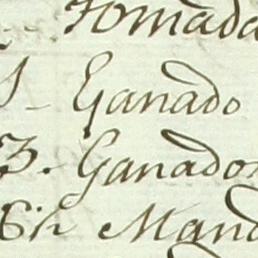 Tornada
1_ Ganado
3. Ganados
Mand